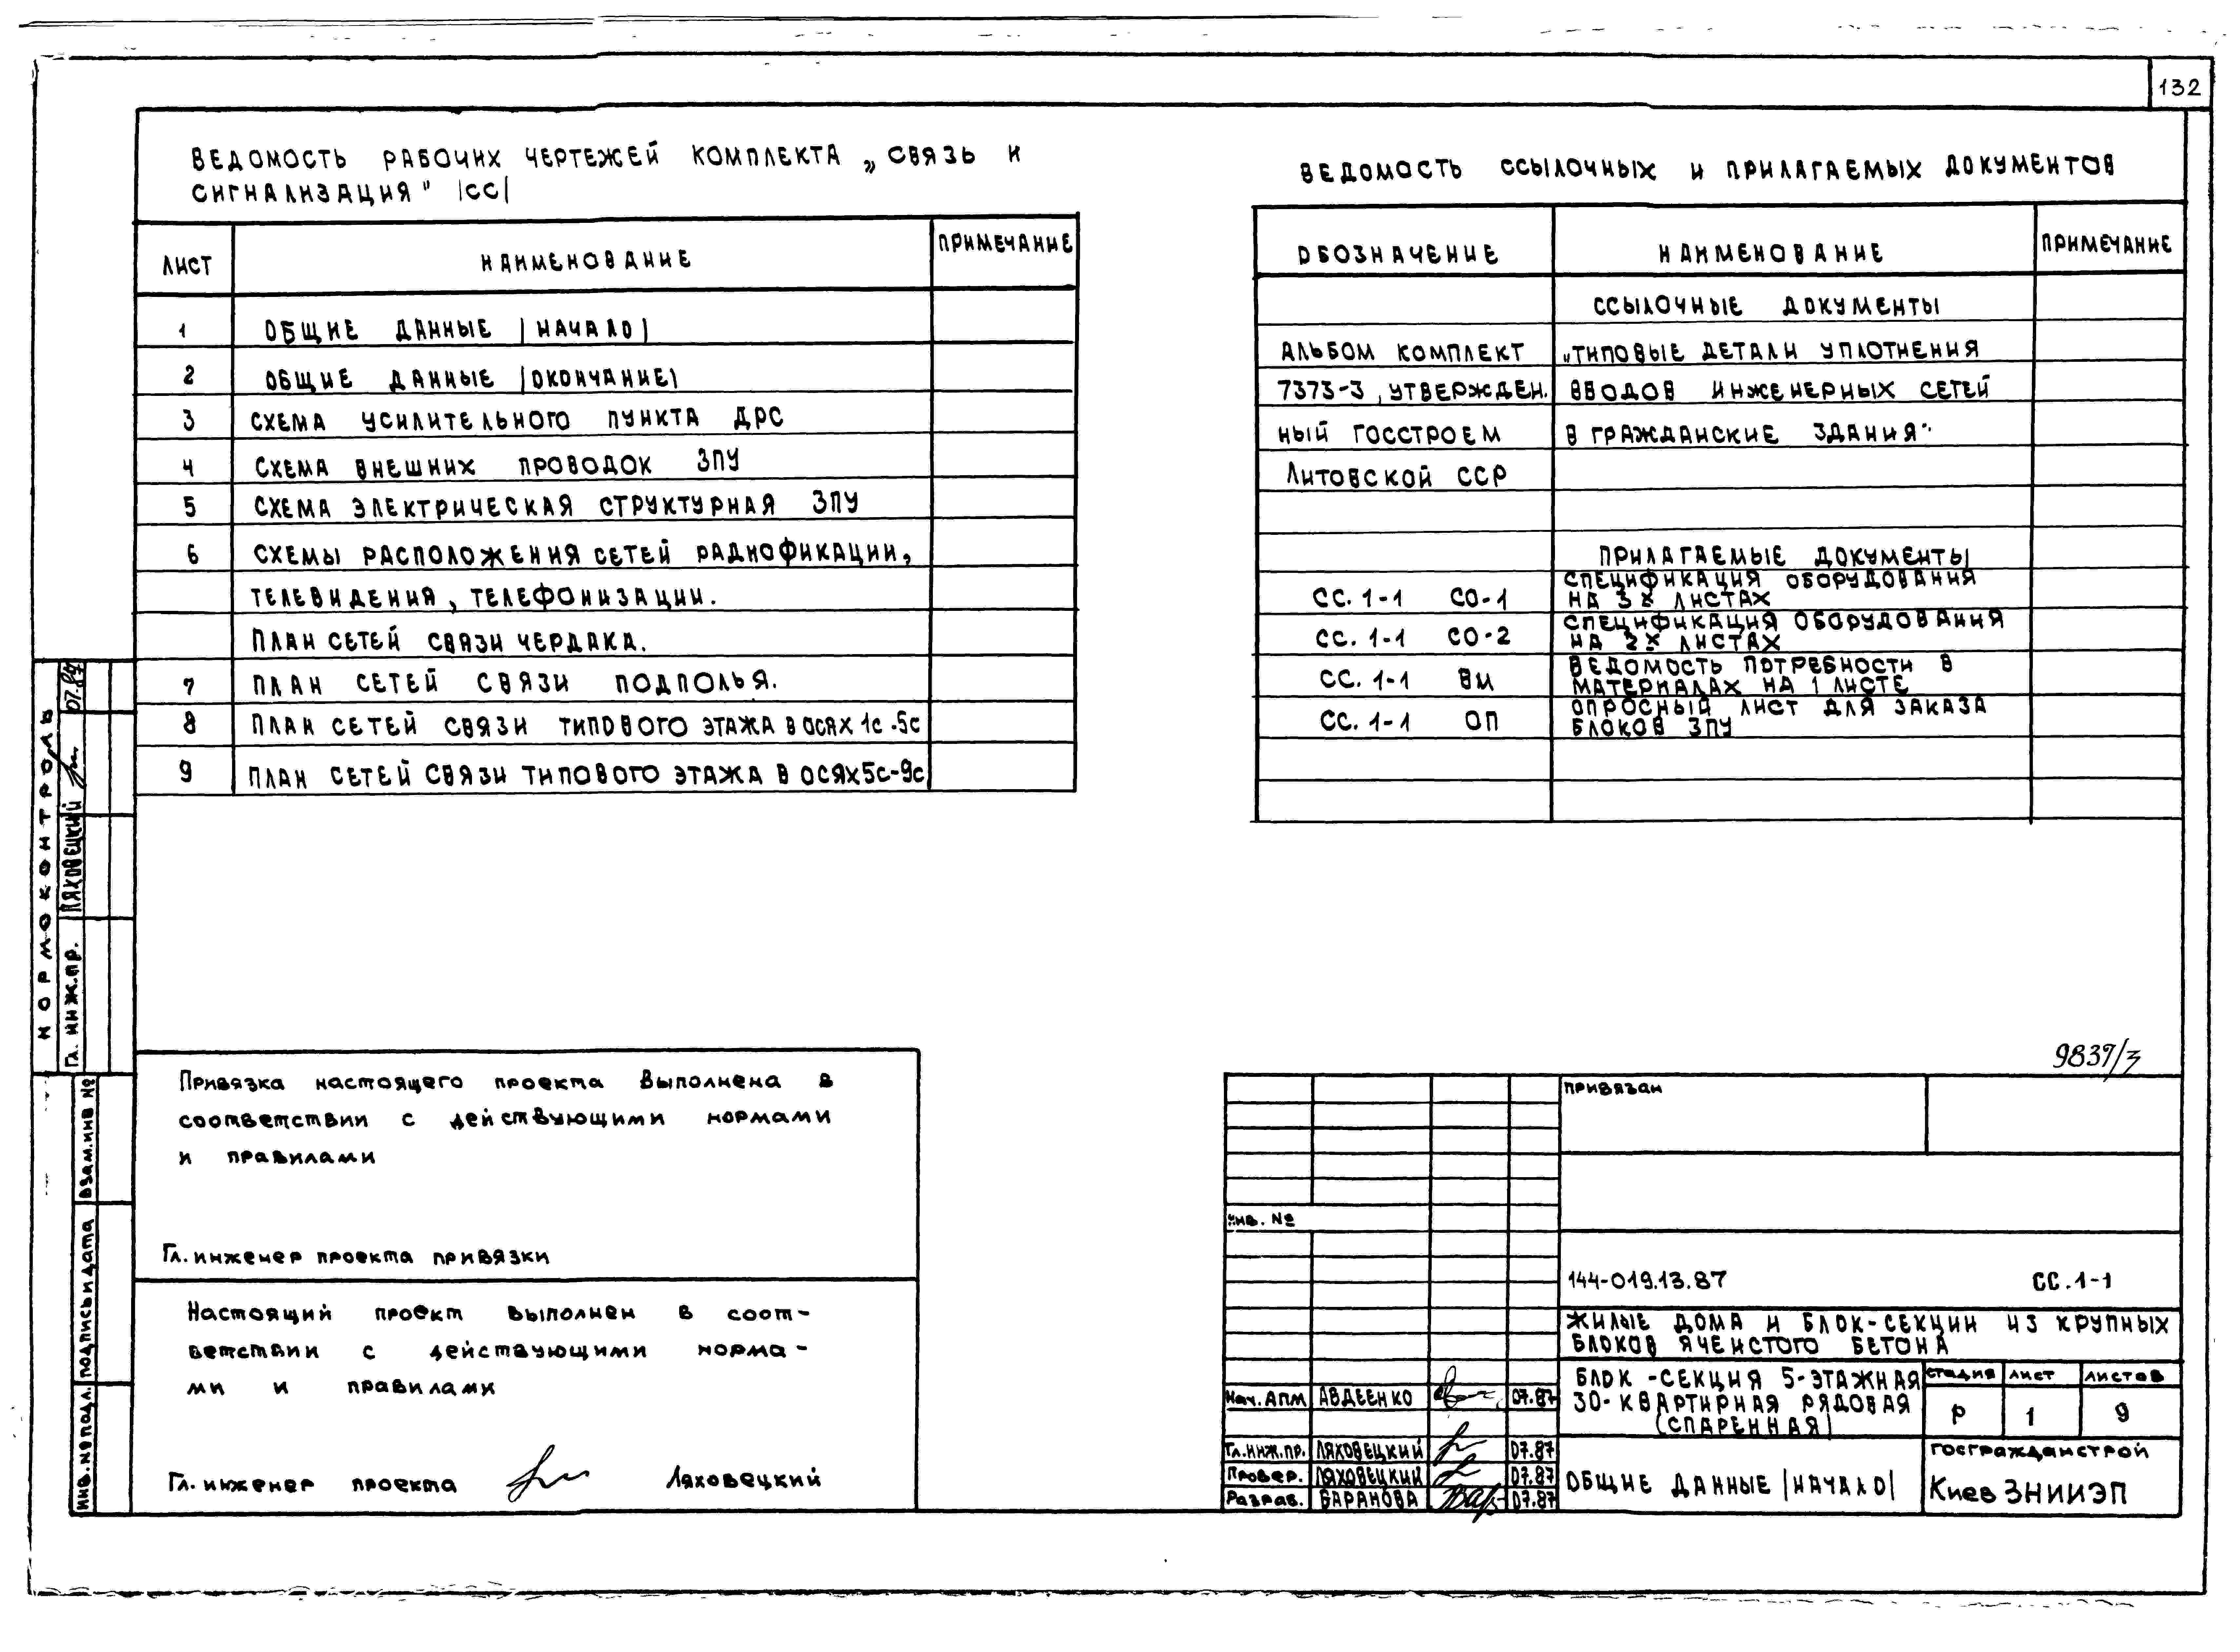 132
ВЕДОМОСТЬ РАБОЧИХ ЧЕРТЕЖЕЙ КОМПЛЕКТА „СВЯЗЬ И
СИГНАЛИЗАЦИЯ" |СС|
ЛИСТ НАИМЕНОВАНИЕ ПРИМЕЧАНИЕ
1 ОБЩИЕ ДАННЫЕ |НАЧАЛО|
2 ОБЩИЕ ДАННЫЕ |ОКОНЧАНИЕ|
3 СХЕМА УСИЛИТЕЛЬНОГО ПУНКТА ДРС
4 СХЕМА ВНЕШНИХ ПРОВОДОК ЗПУ
5 СХЕМА ЭЛЕКТРИЧЕСКАЯ СТРУКТУРНАЯ ЗПУ
6 СХЕМЫ РАСПОЛОЖЕНИЯ СЕТЕЙ РАДИОФИКАЦИИ,
ТЕЛЕВИДЕНИЯ, ТЕЛЕФОНИЗАЦИИ.
ПЛАН СЕТЕЙ СВЯЗИ ЧЕРДАКА.
7 ПЛАН СЕТЕЙ СВЯЗИ ПОДПОЛЬЯ.
8 ПЛАН СЕТЕЙ СВЯЗИ ТИПОВОГО ЭТАЖА В ОСЯХ 1с-5с
9 ПЛАН СЕТЕЙ СВЯЗИ ТИПОВОГО ЭТАЖА В ОСЯХ 5с-9с
ВЕДОМОСТЬ ССЫЛОЧНЫХ И ПРИЛАГАЕМЫХ ДОКУМЕНТОВ
ОБОЗНАЧЕНИЕ НАИМЕНОВАНИЕ ПРИМЕЧАНИЕ
ССЫЛОЧНЫЕ ДОКУМЕНТЫ
АЛЬБОМ КОМПЛЕКТ „ТИПОВЫЕ ДЕТАЛИ УПЛОТНЕНИЯ
7373-3, УТВЕРЖДЕН. ВВОДОВ ИНЖЕНЕРНЫХ СЕТЕЙ
НЫЙ ГОССТРОЕМ В ГРАЖДАНСКИЕ ЗДАНИЯ"
ЛИТОВСКОЙ ССР
ПРИЛАГАЕМЫЕ ДОКУМЕНТЫ
СС. 1-1 СО-1 СПЕЦИФИКАЦИЯ ОБОРУДОВАНИЯ
НА 3х ЛИСТАХ
СС. 1-1 СО-2 СПЕЦИФИКАЦИЯ ОБОРУДОВАНИЯ
НА 2х ЛИСТАХ
СС. 1-1 ВМ ВЕДОМОСТЬ ПОТРЕБНОСТИ В
МАТЕРИАЛАХ НА 1 ЛИСТЕ
СС. 1-1 ОП ОПРОСНЫЙ ЛИСТ ДЛЯ ЗАКАЗА
БЛОКОВ ЗПУ
НОРМОКОНТРОЛЬ
Гл. инж.пр. ЛЯХОВЕЦКИЙ 07.87
ВЗАМ.ИНВ №
ПОДПИСЬ И ДАТА
ИНВ.№ ПОДЛ.
Привязка настоящего проекта выполнена в
соответствии с действующими нормами
и правилами
Гл. инженер проекта привязки
Настоящий проект выполнен в соот-
ветствии с действующими норма-
ми и правилами
Гл. инженер проекта Ляховецкий
9839/3
ПРИВЯЗАН
Инв. №
144-019.13.87 СС.1-1
ЖИЛЫЕ ДОМА И БЛОК-СЕКЦИИ ИЗ КРУПНЫХ
БЛОКОВ ЯЧЕИСТОГО БЕТОНА
БЛОК-СЕКЦИЯ 5-ЭТАЖНАЯ
30-КВАРТИРНАЯ РЯДОВАЯ
(СПАРЕННАЯ)
СТАДИЯ ЛИСТ ЛИСТОВ
Р 1 9
Нач. АПМ АВДЕЕНКО 07.87
Гл.инж.пр. ЛЯХОВЕЦКИЙ 07.87
Провер. ЛЯХОВЕЦКИЙ 07.87
Разраб. БАРАНОВА 07.87
ОБЩИЕ ДАННЫЕ |НАЧАЛО|
ГОСГРАЖДАНСТРОЙ
Киев ЗНИИЭП